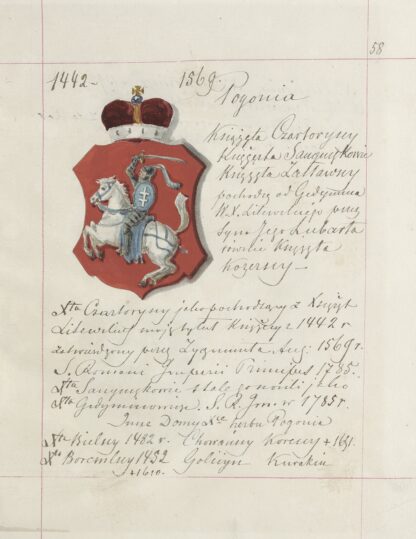 58
1442 – 1569.
Pogonia
Książęta Czartoryscy
Książęta Sanguszkowie
Książęta Zasławscy
pochodzą od Gedymina
W. X. Litewskiego przez
syna jego Lubarta
Książęta
Kozerscy –
Xta Czartoryscy jako pochodzący z Książąt
Litewskich mają tytuł Książęcy z 1442 r
zatwierdzony przez Zygmunta Aug. 1569 r.
S. Romani Imperii Princeps 1785.
Xta Sanguszkowie stale jako
Xta Gedyminowicze. S. R. Im. w 1785 r.
Inne Domy Xce herbu Pogonia
Xta Bielscy 1482 r. Chowańscy Koreccy + 1651.
Xta 1432 Golicyn Kurakin
+ 1610.